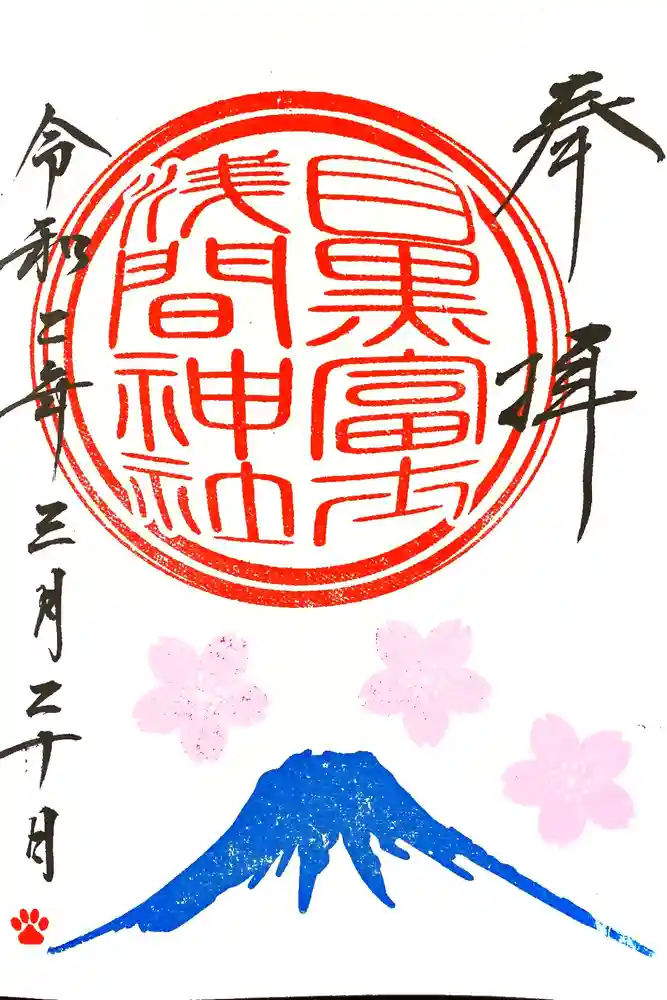 奉拝
目黒富士
浅間神社
令和二年三月二十日